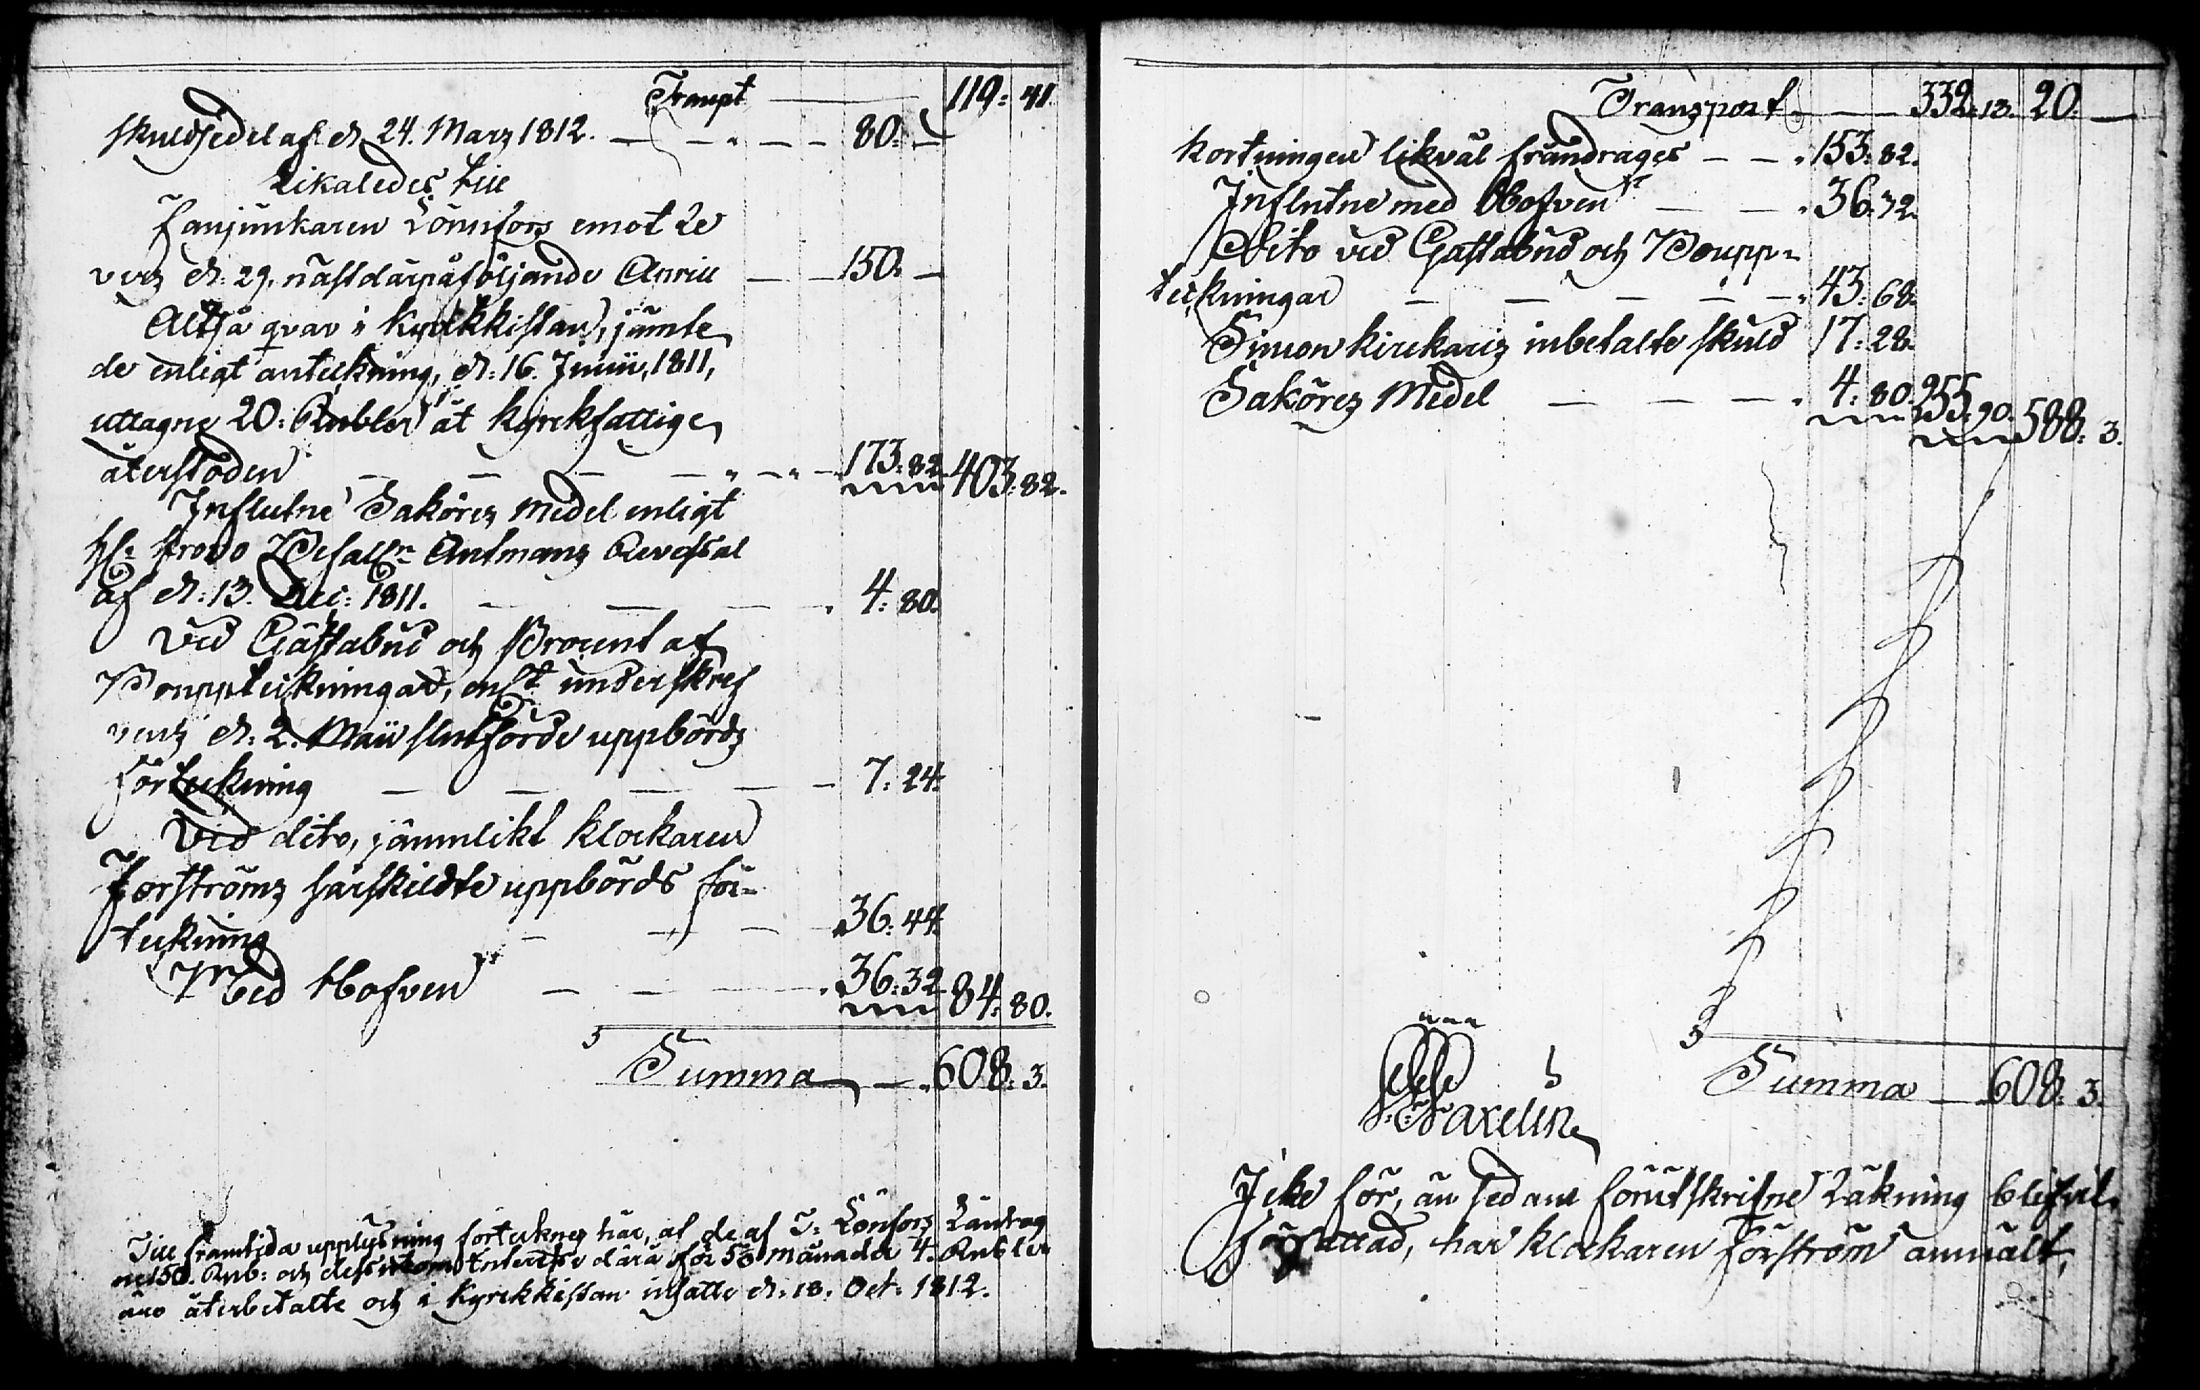 Transpt — 119: 41.
skuldsedel af d. 24. Marz 1812. — 80: —
Likaledes till
Fanjunkaren Lönnfors emot Re
vers d: 29. nästdärpåföljande Aprill — 150: —
Altså qvar i Kyrkkistan, jämte
de enligt anteckning, d: 16. Junii, 1811,
uttagne 20: Rubler åt Kyrkfattige,
återstoden — 173: 82. 403: 82.
Influtne Saköres Medel enligt
af d: 13. Dec: 1811. — 4: 80.
Vid Gästabud och Procent af
Bouppteckningar, enl:t underskref
vens d: 2. Maii slutförde uppbörds
förteckning — 7: 24.
Vid dito, jämnlikt Klockaren
Forströms särskildte uppbörds för-
teckning — 36: 44.
Med Håfven — 36: 32. 84: 80.
Summa — 608: 3.
Till framtida upplysning förteknes här, at de af J: Lönfors Låntag
ne 150. Rub: och dessutom Interesse därå för 5⅓ månader 4. Rubler
äro återbetalte och i Kyrkkistan insatte d. 18. Oct. 1812.
Transport — 332: 13. 20: —
kortningen likväl fråndrages — 153: 82.
Influtne med Håfven — 36: 72.
Dito vid Gästabud och Boupp-
teckningar — 43: 68.
Simon Kirckaris inbetalte skuld 17: 28.
Saköres Medel — 4: 80. 255: 90. 588: 3.
Summa — 608: 3.
Icke för, än sedan förutskrifne Räkning blifvit
Författad, har Klockaren Forström anmält,